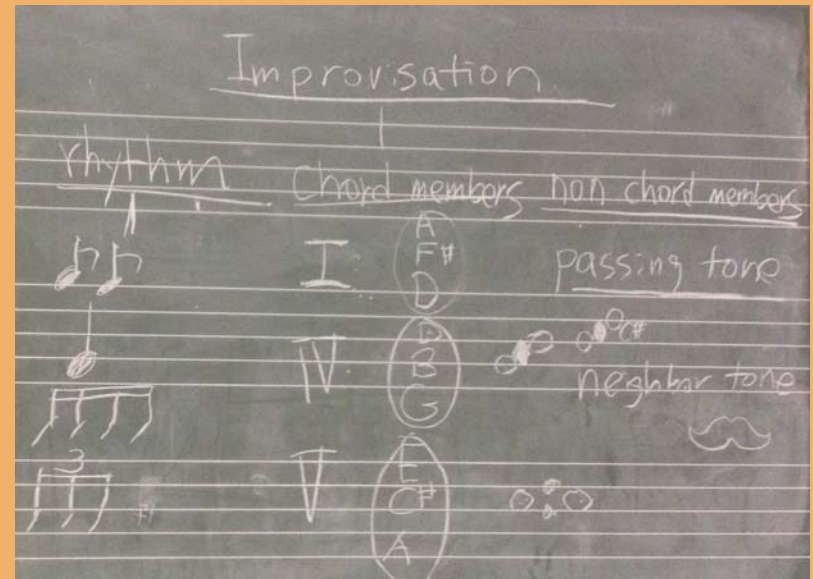 Improvisation
rhythm Chord members non chord members
I A F# D passing tone
IV D B G C#
neighbor tone
3
V E C# A